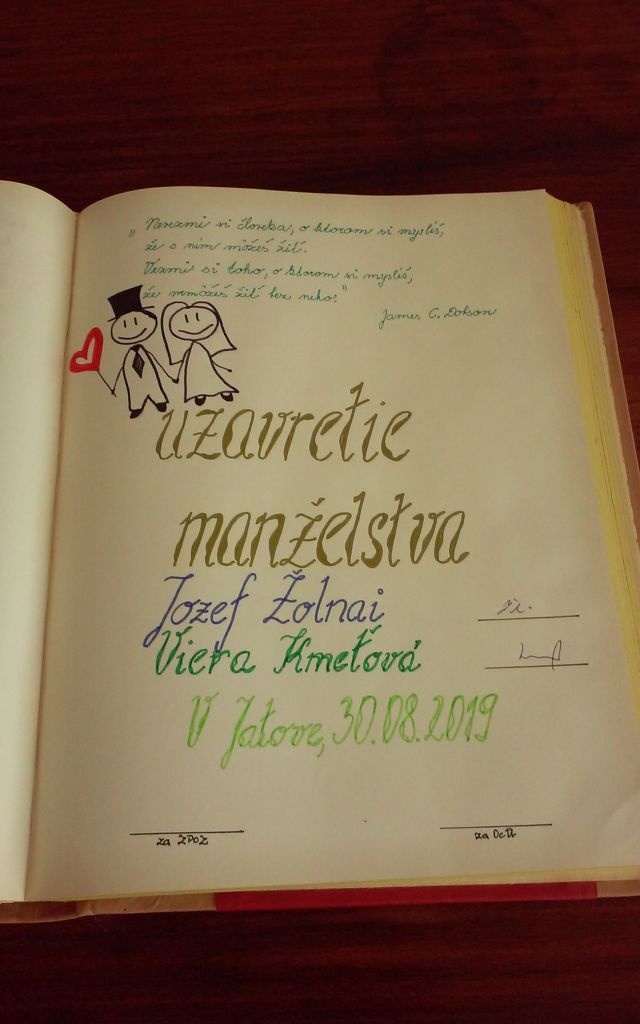 „Nevezmi si človeka, o ktorom si myslíš,
že s ním môžeš žiť.
Vezmi si toho, o ktorom si myslíš,
že nemôžeš žiť bez neho."
James C. Dobson
uzavretie
manželstva
Jozef Žolnai
Viera Kmeťová
V Jatove, 30.08.2019
za ZPOZ
za OcÚ